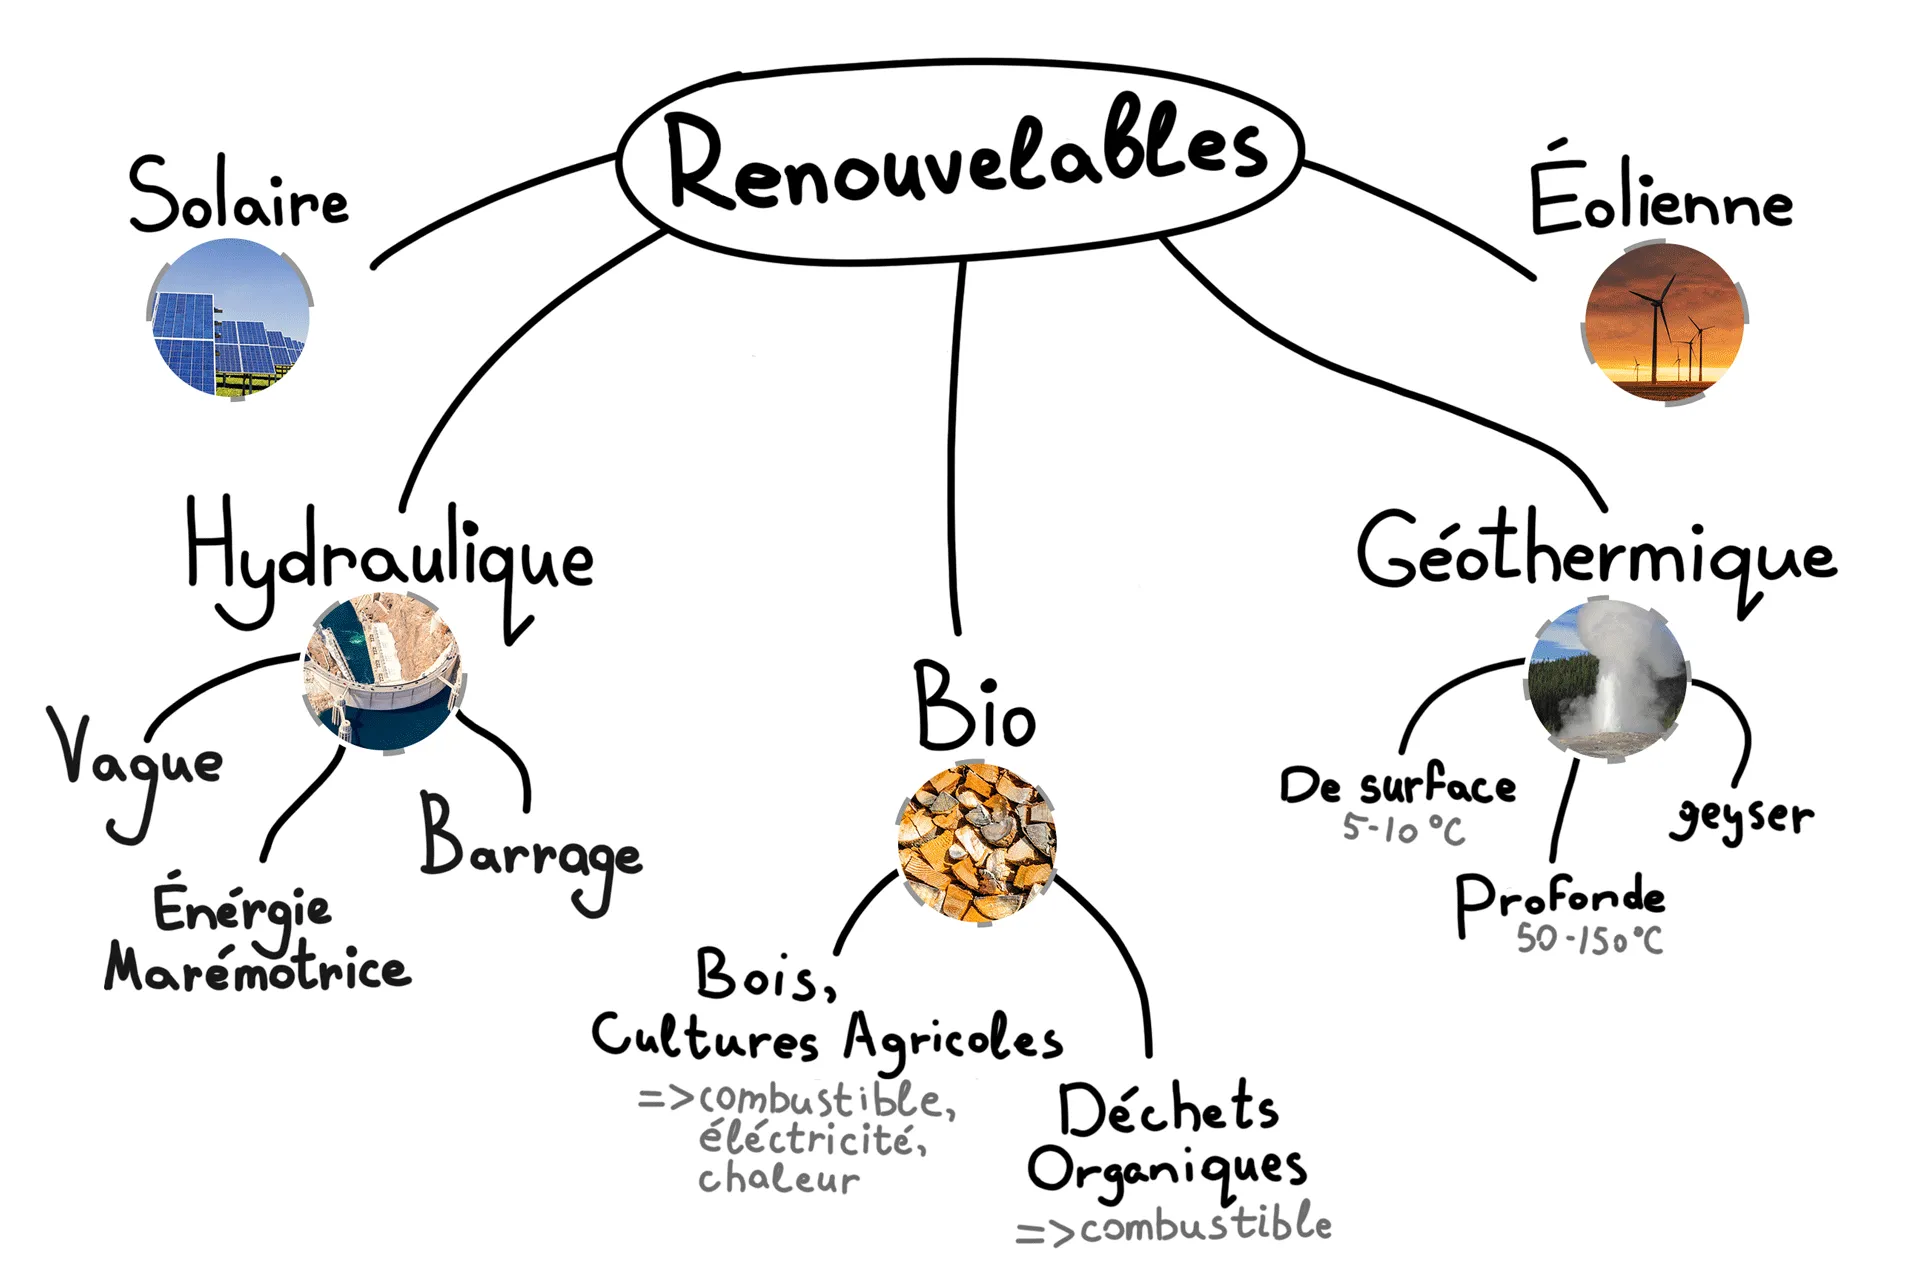 Renouvelables
Solaire
Éolienne
Hydraulique
Vague
Énérgie
Marémotrice
Barrage
Bio
Bois,
Cultures Agricoles
=>combustible,
éléctricité,
chaleur
Déchets
Organiques
=>combustible
Géothermique
De surface
5-10°C
Profonde
50-150°C
geyser